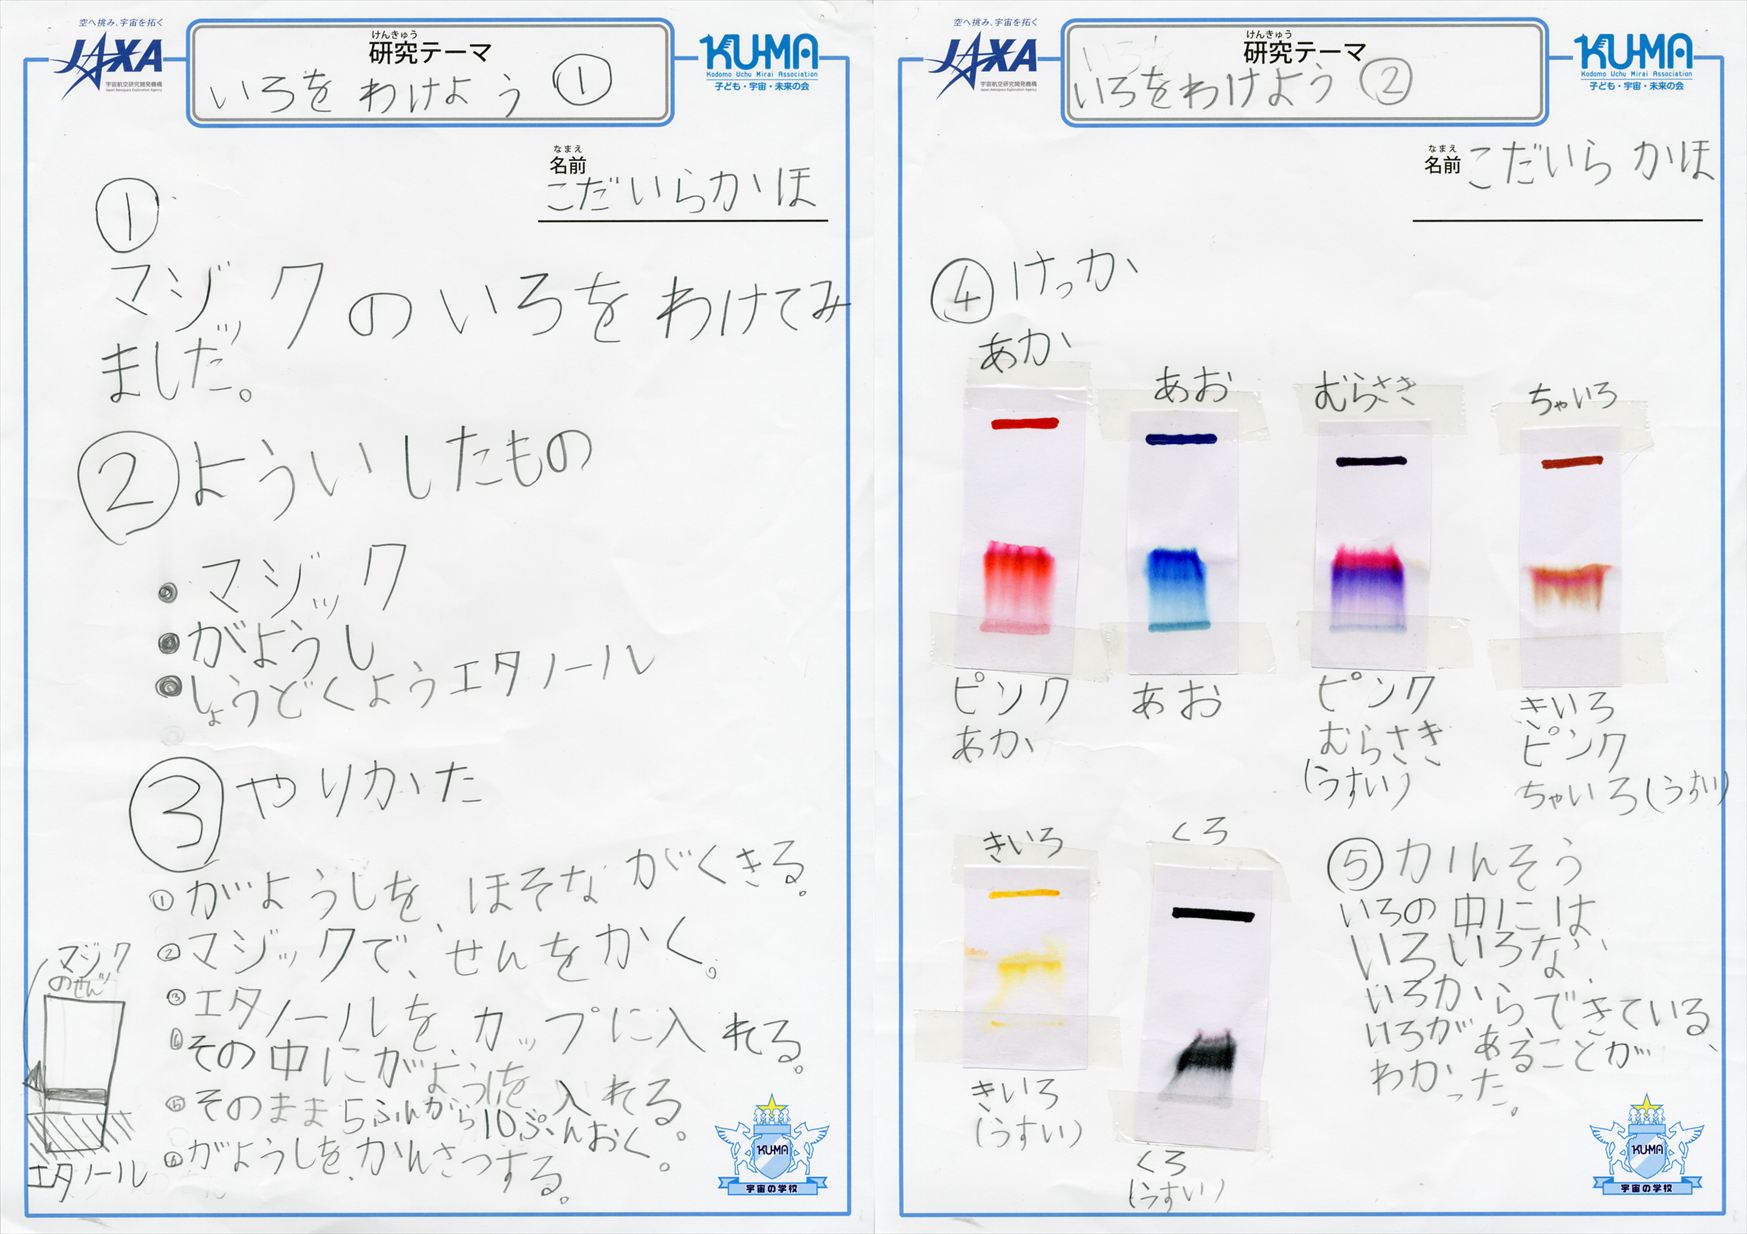 空へ挑み、宇宙を拓く
JAXA
宇宙航空研究開発機構
Japan Aerospace Exploration Agency
けんきゅう
研究テーマ
いろを わけよう ①
KU-MA
Kodomo Uchu Mirai Association
子ども・宇宙・未来の会
なまえ
名前
こだいらかほ
①
マジックのいろをわけてみ
ました。
②よういしたもの
マジック
がようし
しょうどくようエタノール
③やりかた
①がようしを、ほそながくきる。
②マジックで、せんをかく。
③エタノールをカップに入れる。
その中にがようしを入れる。
⑤そのまま5ふんから10ぷんおく。
⑥がようしを、かんさつする。
マジック
のせん
エタノール
KU-MA
宇宙の学校
空へ挑み、宇宙を拓く
JAXA
宇宙航空研究開発機構
Japan Aerospace Exploration Agency
けんきゅう
研究テーマ
いろをわけよう ②
KU-MA
Kodomo Uchu Mirai Association
子ども・宇宙・未来の会
なまえ
名前
こだいら かほ
④けっか
あか
ピンク
あか
あお
あお
むらさき
ピンク
むらさき
(うすい)
ちゃいろ
きいろ
ピンク
ちゃいろ(うすい)
きいろ
きいろ
(うすい)
くろ
くろ
(うすい)
⑤かんそう
いろの中には
いろいろな、
いろからできている、
いろがあることが
わかった。
KU-MA
宇宙の学校